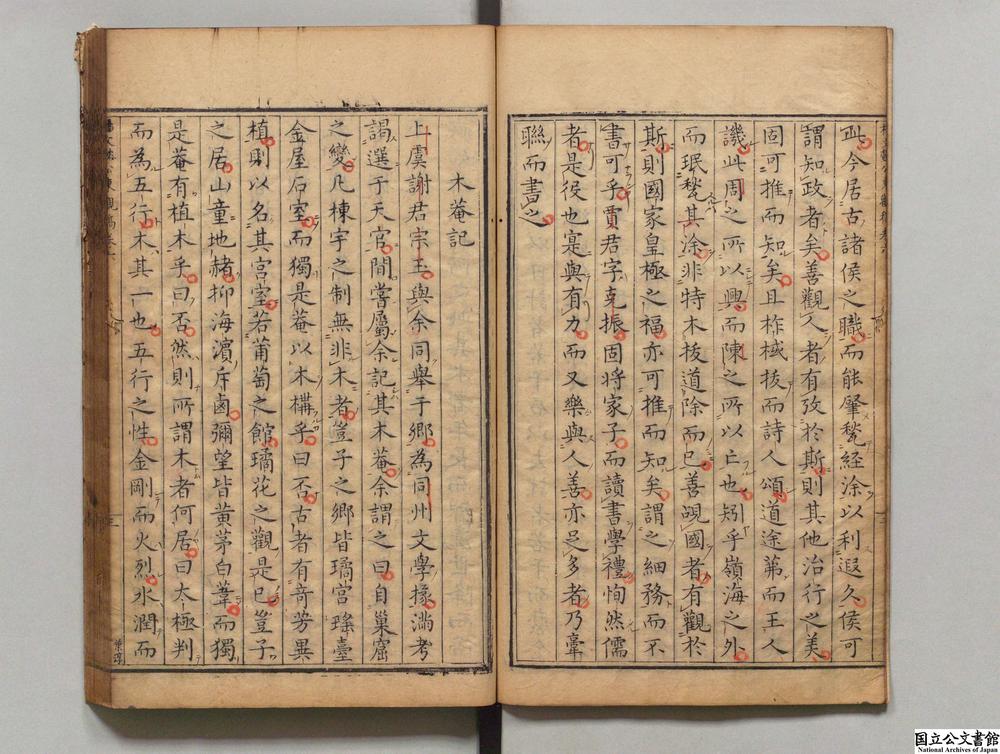 此今居古諸侯之職而能肇甃経涂以利遐久侯可
謂知政者矣善觀人者有攷於斯則其他治行之美
固可推而知矣且柞棫拔而詩人頌道途茀而王人
譏此周之所以興而陳之所以亡也矧乎嶺海之外
而珉甃其涂非特木拔道除而已善覘國者有觀於
斯則國家皇極之福亦可推而知矣謂之細務而不
書可乎賈君字克振固將家子而讀書學禮恂然儒
者是役也寔與有力而又樂與人善亦足多者乃彙
聯而書之
木菴記
上虞謝君宗玉與余同舉于鄉為同州文學掾滿考
謁選于天官間嘗屬余記其木菴余謂之曰自巢窟
之變凡棟宇之制無非木者豈子之鄉皆璚宫瑤臺
金屋石室而獨是菴以木構乎曰否古者有奇芳異
植則以名其宫室若葡萄之館璚花之觀是已豈子
之居山童地赭抑海濱斥鹵彌望皆黃茅白葦而獨
是菴有植木乎曰否然則所謂木者何居曰太極判
而為五行木其一也五行之性金剛而火烈水潤而
国立公文書館
National Archives of Japan